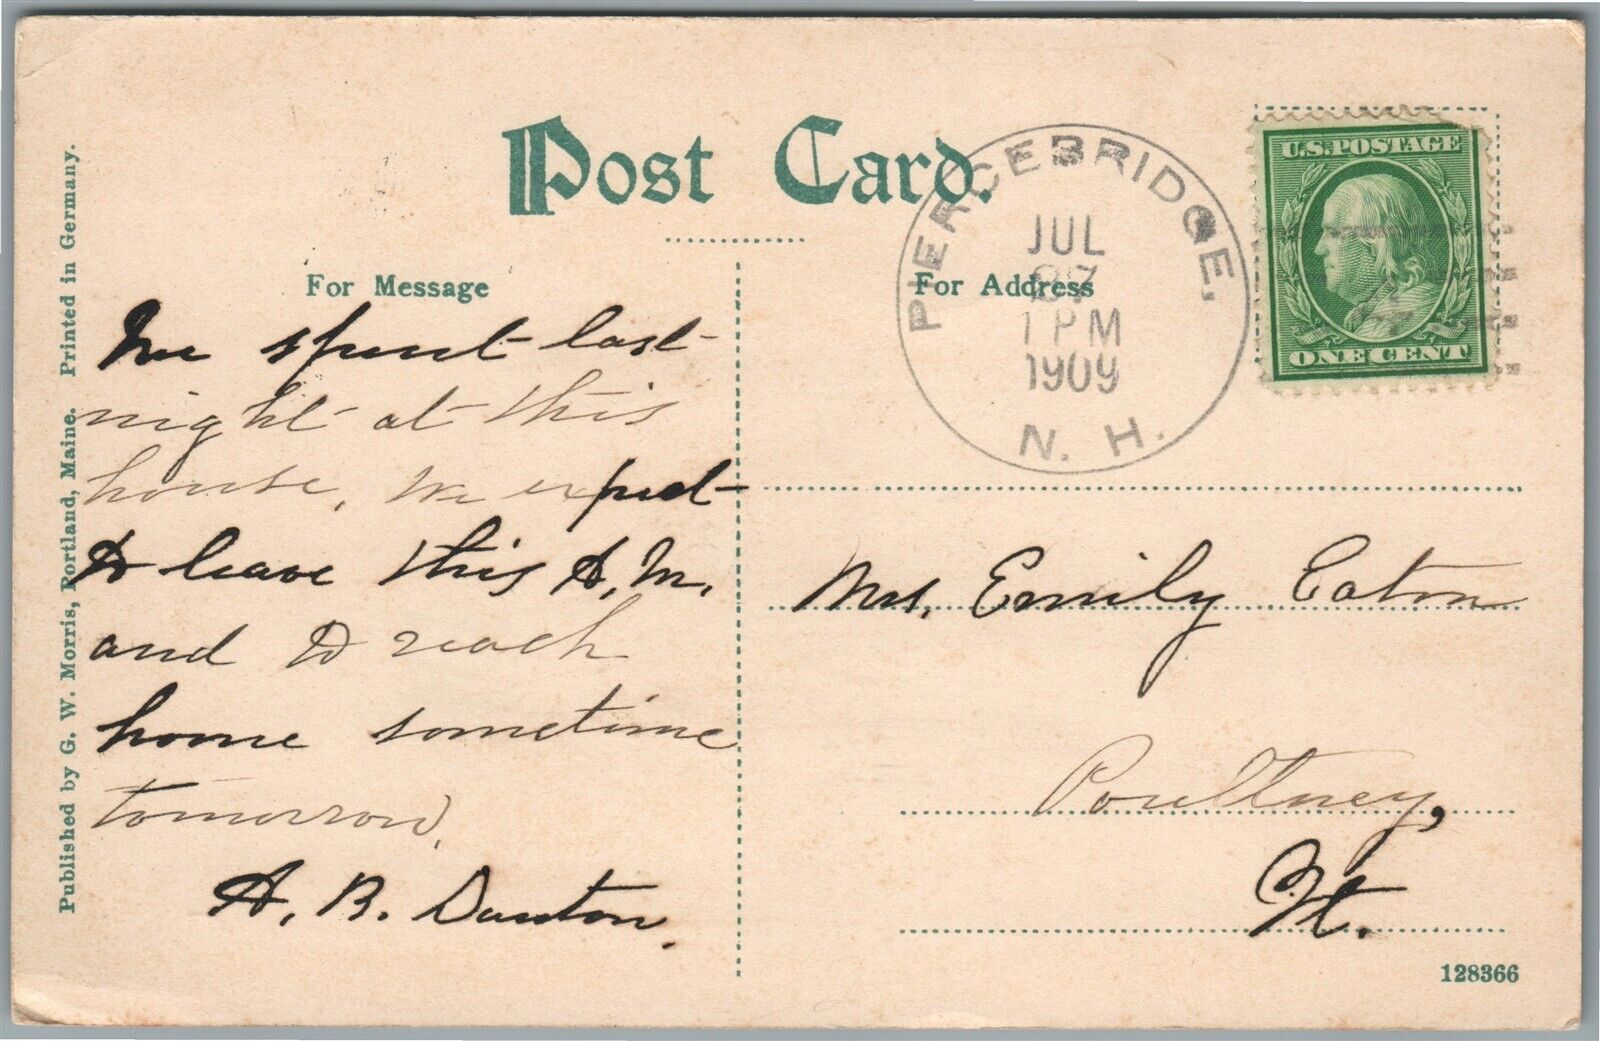 Post Card.
For Message
We spent last
night at this
house, we expect
to leave this A.M.
and to reach
home sometime
tomorrow,
A. B.
Published by G. W. Morris, Portland, Maine. Printed in Germany.
PIERCEBRIDGE,
JUL
1 PM
1909
N. H.
U.S. POSTAGE
ONE CENT
For Address
Mrs. Emily Eaton
Poultney,
Vt.
128366